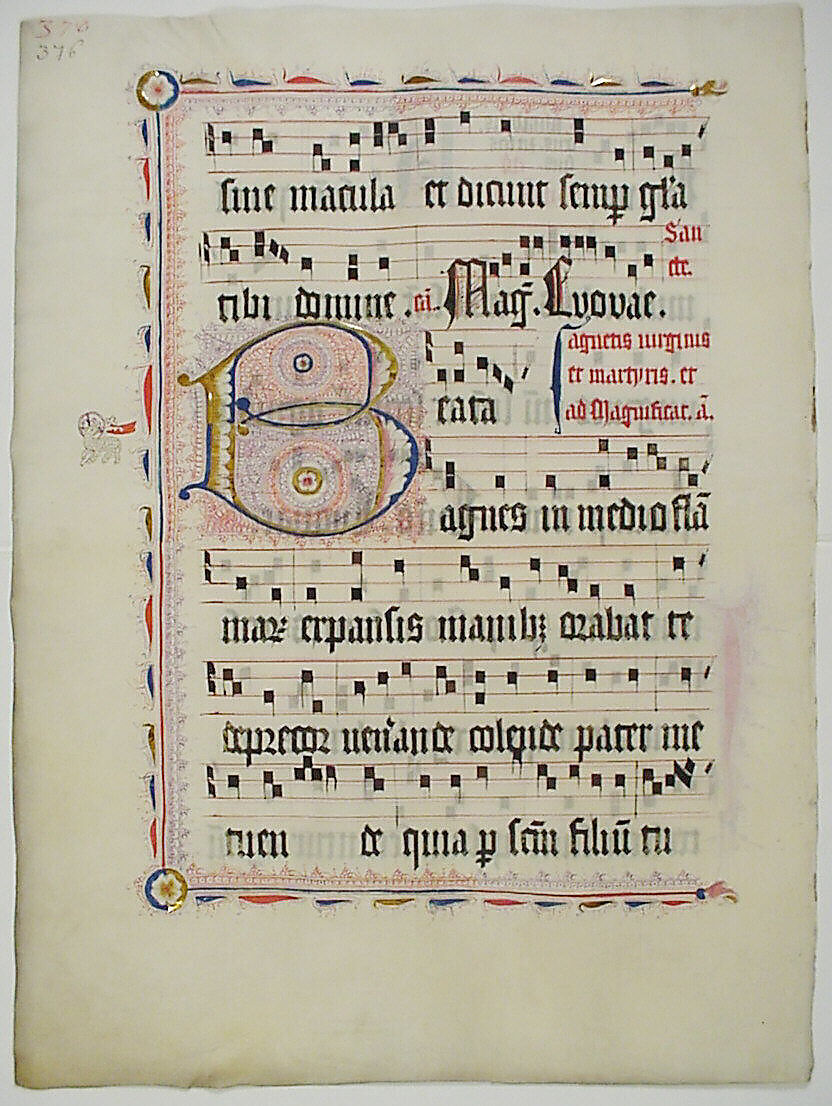 376
376
sine macula et dicunt semp gl'a
San
cte.
tibi domine . añ. Mag̃. Evovae.
agnetis uirginis
et martyris. et
ad Magnificat. ã.
Beata
agnes in medio flã
mar expansis manibꝫ orabat te
deprecor uen'ande colende pater me
tuen de quia ꝑ scm̃ filiũ tu